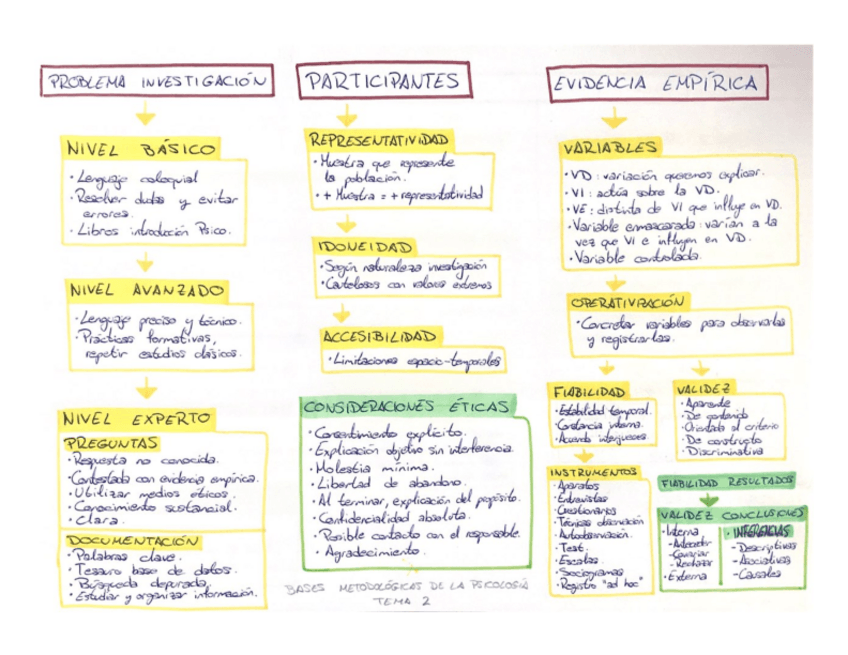 PROBLEMA INVESTIGACIÓN
NIVEL BÁSICO
· Lenguaje coloquial
· Resolver dudas y evitar
errores.
· Libros introducción Psico.
NIVEL AVANZADO
· Lenguaje preciso y técnico.
· Prácticas formativas,
repetir estudios clásicos.
NIVEL EXPERTO
PREGUNTAS
· Respuesta no conocida.
· Contestada con evidencia empírica.
· Utilizar medios éticos.
· Conocimiento sustancial.
· Clara.
DOCUMENTACIÓN
· Palabras clave.
· Tesauro base de datos.
· Búsqueda depurada.
· Estudiar y organizar información.
PARTICIPANTES
REPRESENTATIVIDAD
· Muestra que represente
la población.
· + Muestra = + representatividad
IDONEIDAD
· Según naturaleza investigación
· Cautelosos con valores extremos
ACCESIBILIDAD
· Limitaciones espacio-temporales
CONSIDERACIONES ÉTICAS
· Consentimiento explícito.
· Explicación objetivo sin interferencia.
· Molestia mínima.
· Libertad de abandono.
· Al terminar, explicación del propósito.
· Confidencialidad absoluta.
· Posible contacto con el responsable.
· Agradecimiento.
BASES METODOLÓGICAS DE LA PSICOLOGÍA
TEMA 2
EVIDENCIA EMPÍRICA
VARIABLES
· VD: variación queremos explicar.
· VI: actúa sobre la VD.
· VE: distinta de VI que influye en VD.
· Variable enmascarada: varían a la
vez que VI e influyen en VD.
· Variable controlada.
OPERATIVIZACIÓN
· Concretar variables para observarlas
y registrarlas.
FIABILIDAD
· Estabilidad temporal.
· Constancia interna.
· Acuerdo interjueces.
VALIDEZ
· Aparente
· De contenido
· Orientada al criterio
· De constructo
· Discriminativa
INSTRUMENTOS
· Aparatos
· Entrevistas
· Cuestionarios
· Técnicas observación
· Autoobservación.
· Test.
· Escalas.
· Sociogramas
· Registro "ad hoc"
FIABILIDAD RESULTADOS
VALIDEZ CONCLUSIONES
· Interna
- Anteceder
- Covariar
- Rechazar
· Externa
· INFERENCIAS
- Descriptivas
- Asociativas
- Causales